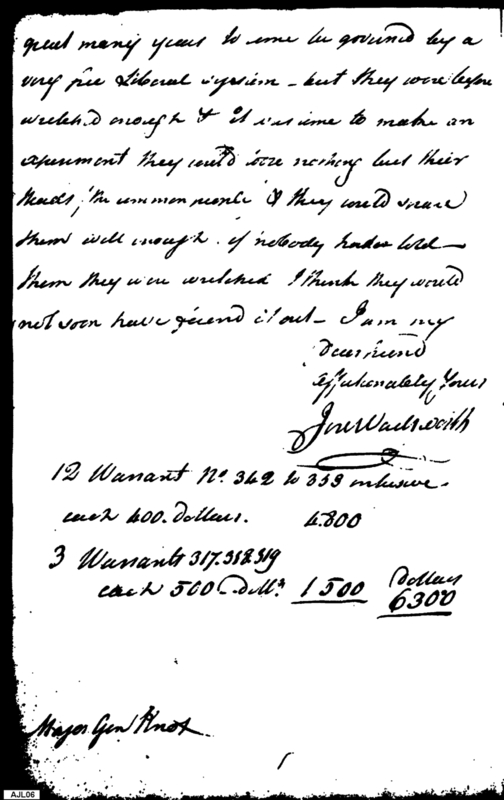 great many years to come be governed by a
very free & Liberal system - but they were before
wretched enough & it was time to make an
experiment they could loose nothing but their
Heads, the common people & they could spare
them well enough. if nobody had told
them they were wretched I think they would
not soon have found it out - I am my
Dear friend
affectionately Yours
Jere Wadsworth
12 Warrant No. 342 to 353 inclusive -
each 400. dollars. 4.800
3 Warrants 317.318.319
each 500 Dolls. 1500 Dollars
6300
Major Gen Knox
AJL06